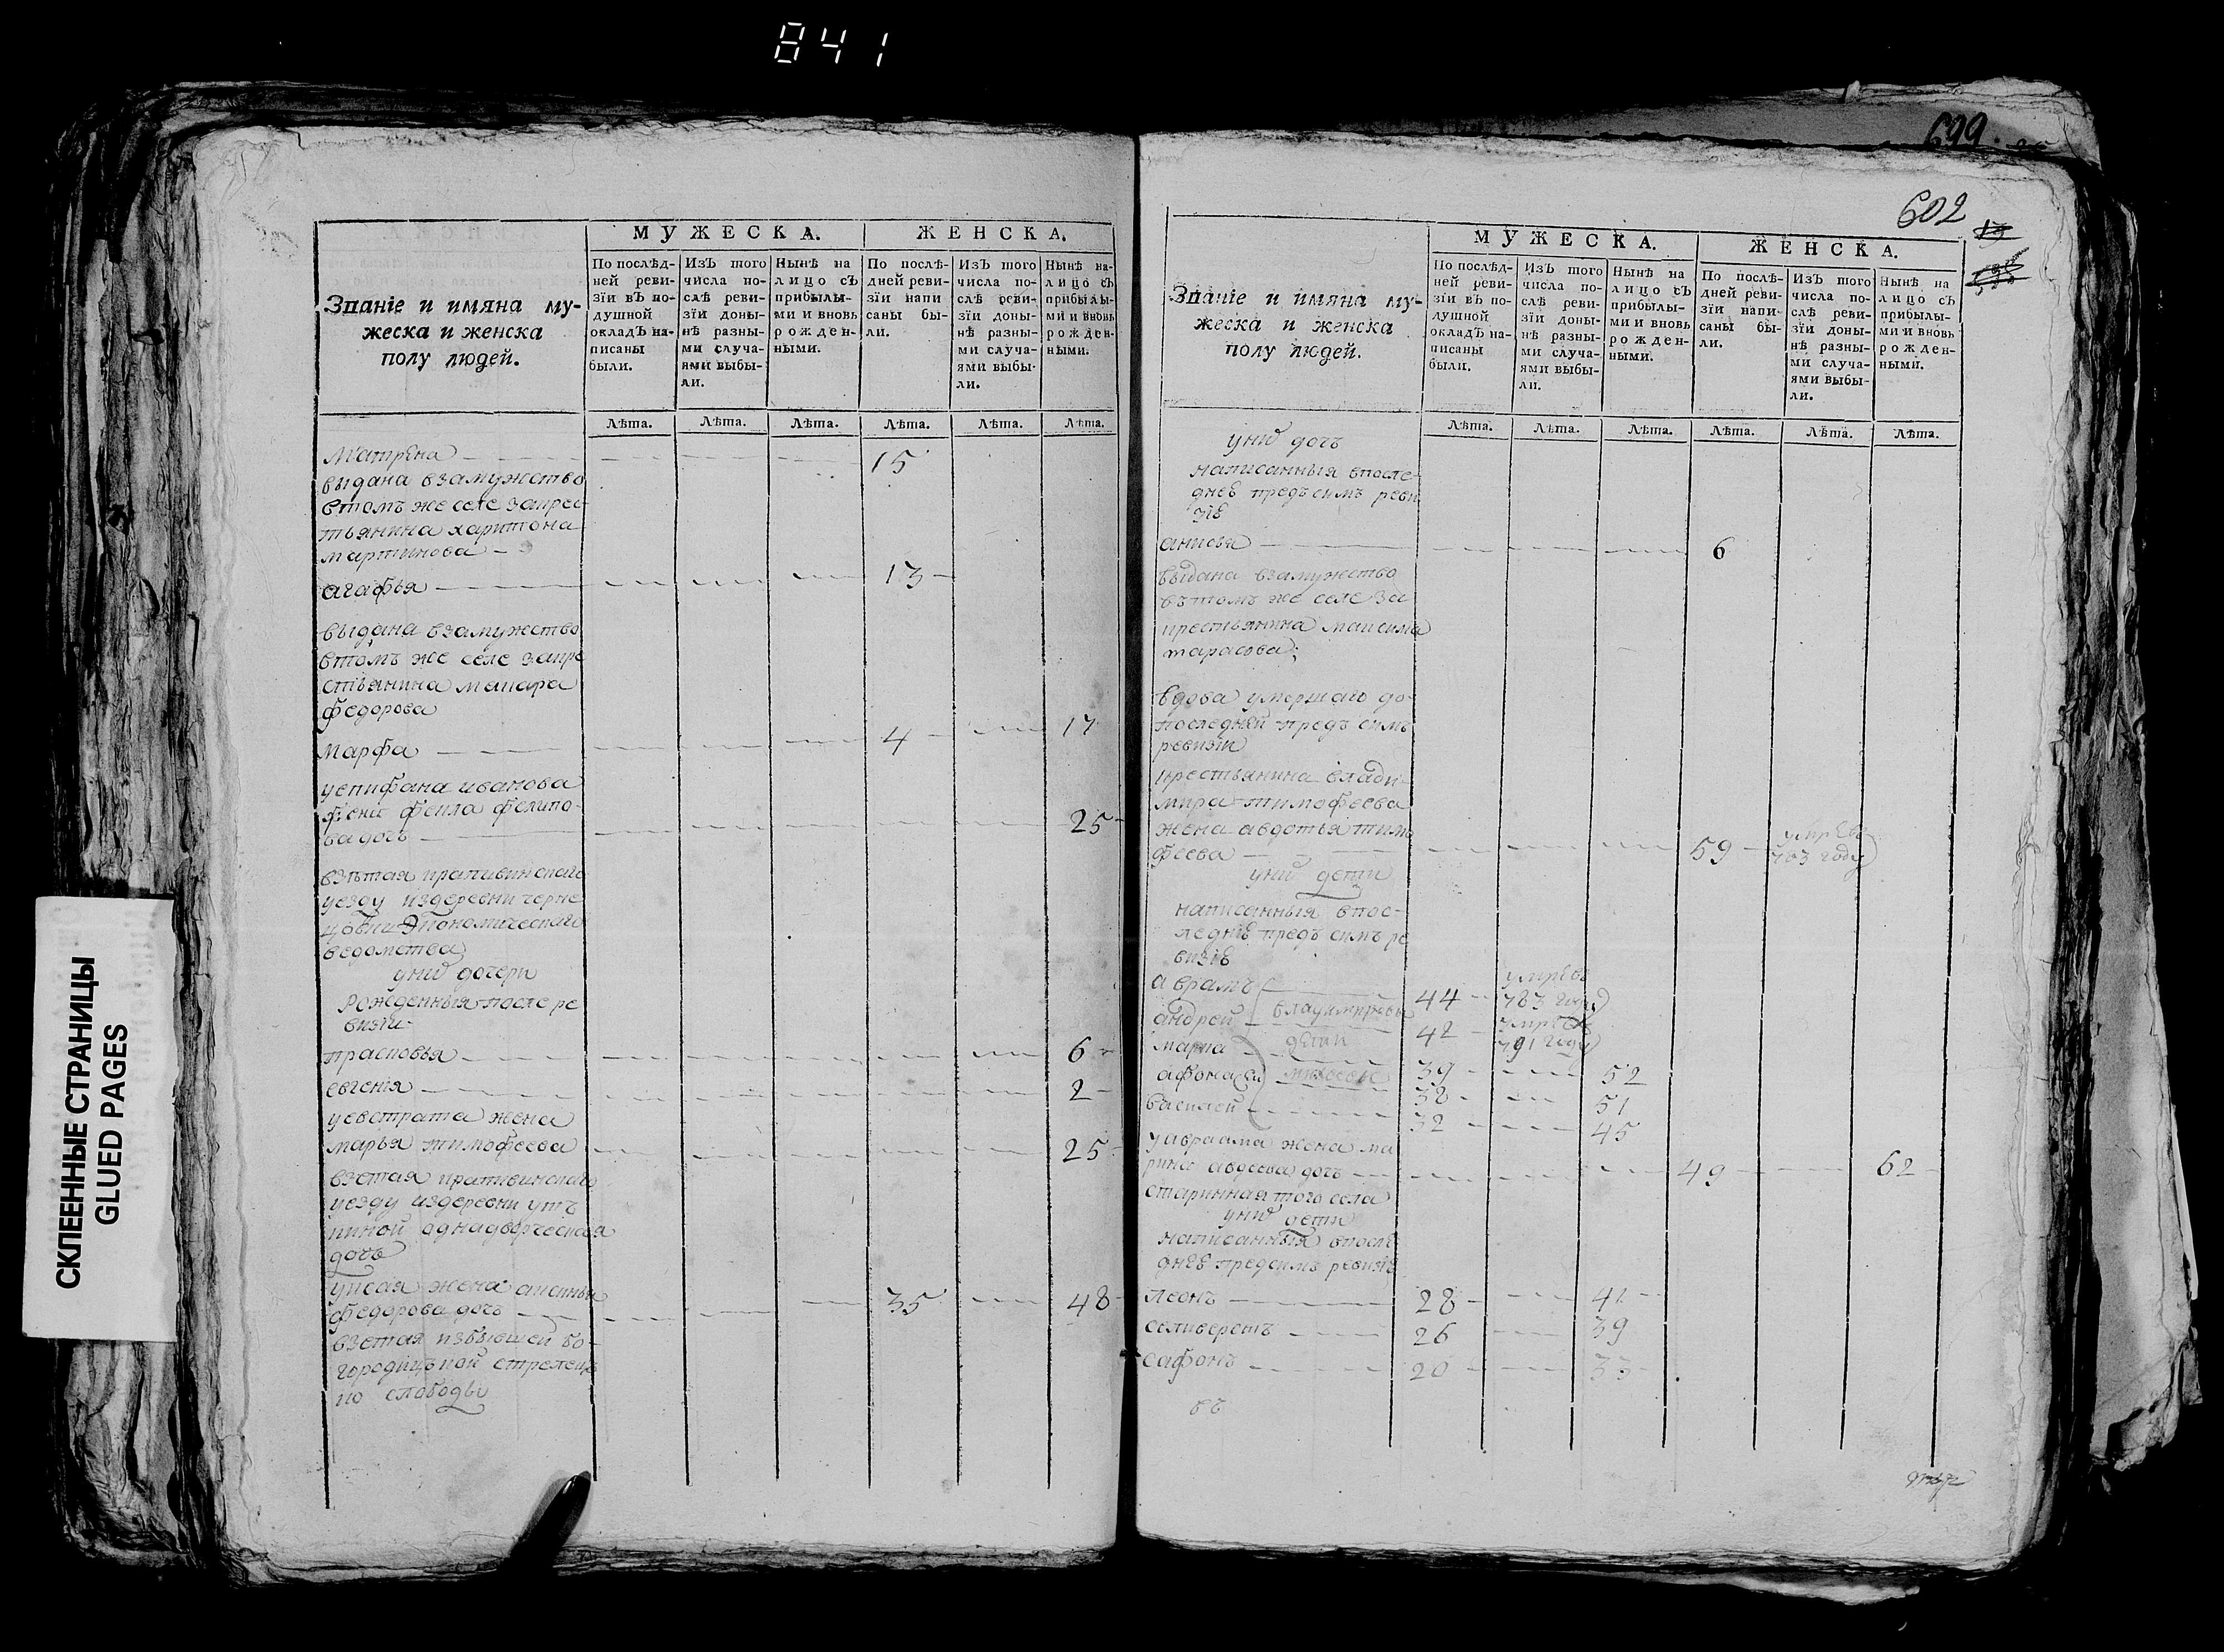 841
699
602
СКЛЕЕННЫЕ СТРАНИЦЫ
GLUED PAGES
Званіе и имяна му-
жеска и женска
полу людей.
МУЖЕСКА.
ЖЕНСКА.
По послѣд-
ней реви-
зїи вЪ по-
душной
окладЪ на-
писаны
были.
ИзЪ того
числа по-
слѣ реви-
зїи доны-
нѣ разны-
ми случа-
ями выбы-
ли.
Нынѣ на
лицо сЪ
прибылы-
ми и вновь
рожден-
ными.
По послѣ-
дней реви-
зїи напи
саны бы-
ли.
ИзЪ того
числа по-
слѣ реви-
зїи доны-
нѣ разны-
ми случа-
ями выбы-
ли.
Нынѣ на-
лицо сЪ
прибылы-
ми и вновь
рожден-
ными.
Лѣта. Лѣта. Лѣта. Лѣта. Лѣта. Лѣта.
Матрена 15
выдана взамужство
втомъ же селе закрес
тьянина харитона
мартинова
агафья 13
выдана взамужство
втомъ же селе закре
стьянина макара
федорова
марфа 4 17
уепифана иванова
фекла фелипо
ва дочь 25
взятая крапивинскаго
уезду издеревни черне
экономическаго
ведомства
унив дочери
рожденныя после ре
визіи
прасковья 6
евгенія 2
уевстрата жена
марья тимофеева 25
взетая крапивинскаго
уезду издеревни
однадворческая
дочь
жена аксинья
федорова дочь 35 48
взетая избывшей бо-
городицкой стрелец
ко слободы
Званіе и имяна му-
жеска и женска
полу людей.
МУЖЕСКА.
ЖЕНСКА.
По послѣд-
ней реви-
зїи вЪ по-
душной
окладЪ на-
писаны
были.
ИзЪ того
числа по-
слѣ реви-
зїи доны-
нѣ разны-
ми случа-
ями выбы-
ли.
Нынѣ на
лицо сЪ
прибылы-
ми и вновь
рожден-
ными.
По послѣ-
дней реви-
зїи напи-
саны бы-
ли.
ИзЪ того
числа по-
слѣ реви-
зїи доны-
нѣ разны-
ми случа-
ями выбы-
ли.
Нынѣ на
лицо сЪ
прибылы-
ми и вновь
рожден-
ными.
Лѣта. Лѣта. Лѣта. Лѣта. Лѣта. Лѣта.
унив дочь
написанныя впосле-
дней предъ симъ реви
зіе
анисья 6
выдана взамужство
вътомъ же селе за
крестьянина максима
тарасова
вдова умершаго до
последней предъ симъ
ревизіи
крестьянина влади
мира тимофеева
жена авдотья тимо
феева 59 783 году
унив дети
написанныя впос-
ледне предъ симъ ре
визіе
аврамъ 44 783 году
андрей владимировы 42 791 году
марка дети 39 52
афонасей 38 51
василей 32 45
уавраама жена ма
рина авдеева дочь 49 62
старинная того села
унив дети
написанныя впосле
дне предсимъ ревизіе
леонъ 28 41
селиверстъ 26 39
сафонъ 20 33